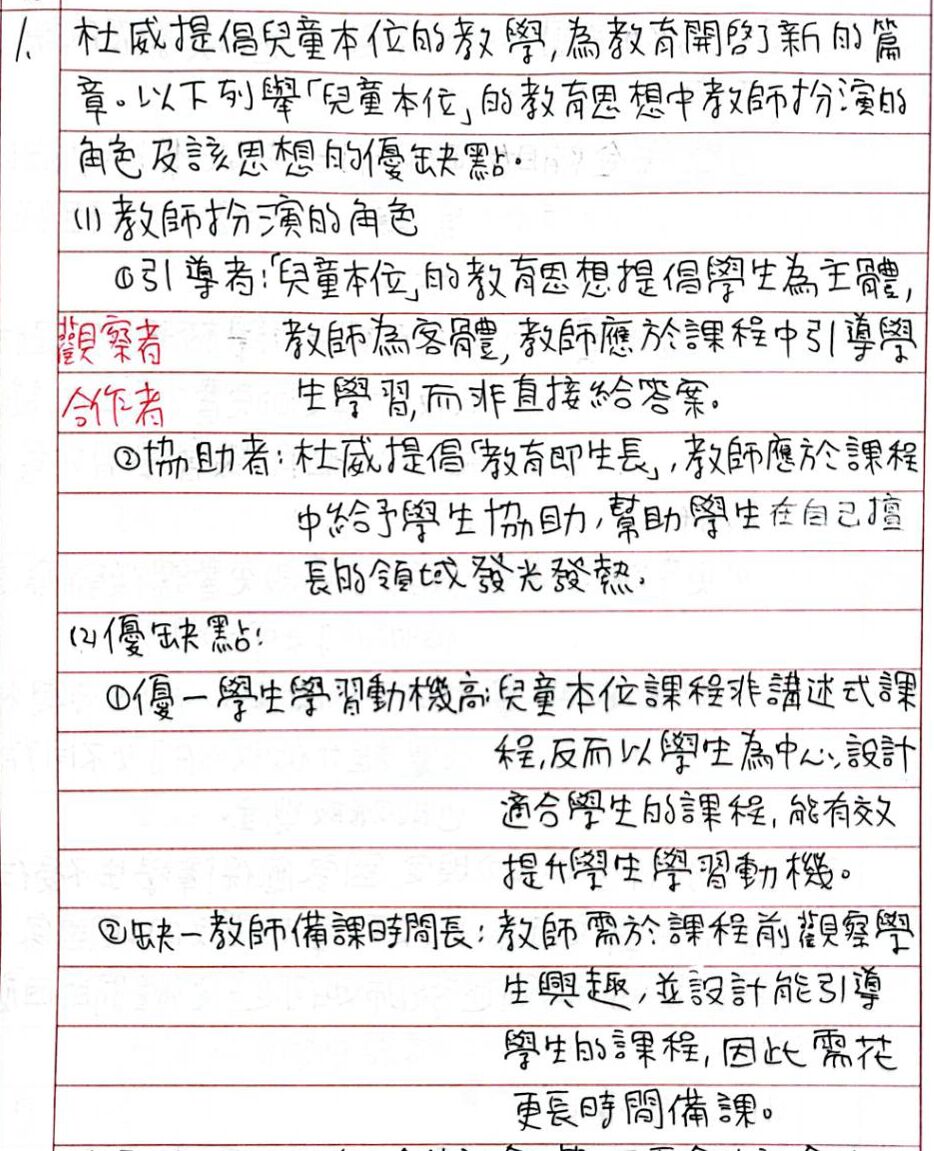 1. 杜威提倡兒童本位的教學,為教育開啓了新的篇
章。以下列舉「兒童本位」的教育思想中教師扮演的
角色及該思想的優缺點。
(1) 教師扮演的角色
①引導者:「兒童本位」的教育思想提倡學生為主體,
觀察者
教師為客體,教師應於課程中引導學
合作者
生學習,而非直接給答案。
②協助者:杜威提倡「教育即生長」,教師應於課程
中給予學生協助,幫助學生在自己擅
長的領域發光發熱。
(2)優缺點:
①優-學生學習動機高:兒童本位課程非講述式課
程,反而以學生為中心,設計
適合學生的課程,能有效
提升學生學習動機。
②缺-教師備課時間長:教師需於課程前觀察學
生興趣,並設計能引導
學生的課程,因此需花
更長時間備課。